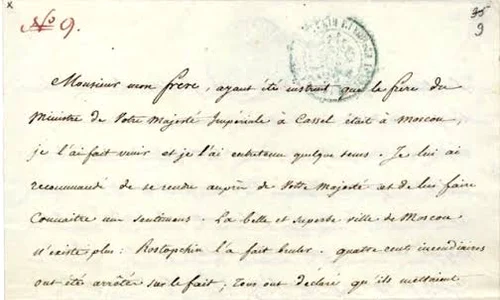 x
No 9.
35
9
Monsieur mon frere, ayant été instruit que le frère du
Ministre de Votre Majesté Impériale à Cassel était à Moscou,
je l'ai fait venir et je l'ai entretenu quelque tems. Je lui ai
recommandé de se rendre auprès de Votre Majesté et de lui faire
connaitre mes sentimens. La belle et superbe ville de Moscou
n'existe plus: Rostopchin l'a fait bruler. quatre cents incendiaires
ont été arrêtés sur le fait; tous ont déclaré qu'ils mettaient